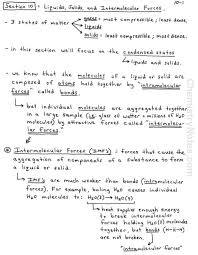 Section 10 - Liquids, Solids and Intermolecular Forces. 10-1
- 3 states of matter
gases - most compressible, least dense.
liquids
solids - least compressible, most dense.
- in this section we'll focus on the condensed states
↳ liquids and solids.
- we know that the molecules of a liquid or solid are
composed of atoms held together by "intramolecular
forces" called bonds.
↳ but individual molecules are aggregated together
in a large sample (i.e. glass of water = millions of H2O
molecules) by attractive forces called "intermolecu-
lar forces."
Intermolecular Forces (IMF's) : forces that cause the
aggregation of components of a substance to form
a liquid or solid.
↳ IMF's are much weaker than bonds (intramolecular
forces). For example, boiling H2O causes individual
H2O molecules to: H2O(l) → H2O(g)
↳ heat supplies enough energy
to break intermolecular
forces holding H2O molecules
together, but bonds (H-O-H)
are not broken.
"intramolecular forces"